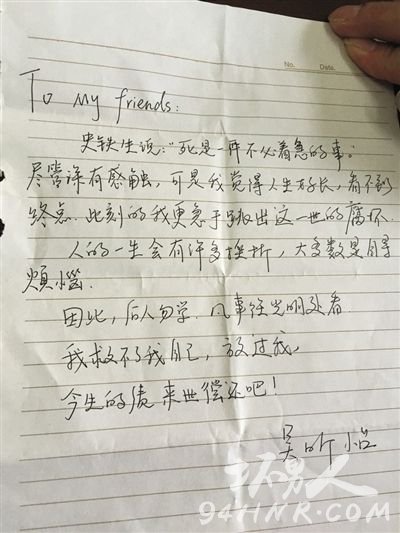 No. Date.
To My friends:
史铁生说:"死是一件不必着急的事。"
尽管深有感触,可是我觉得人生好长,看不到
终点.此刻的我更急于跳出这一世的腐坏.
人的一生会有许多挫折,大多数是自寻
烦惱.
因此,后人勿学.凡事往光明处看.
我救不了我自己,放过我,
今生的债来世偿还吧!
吴昕怡
94HNR.COM